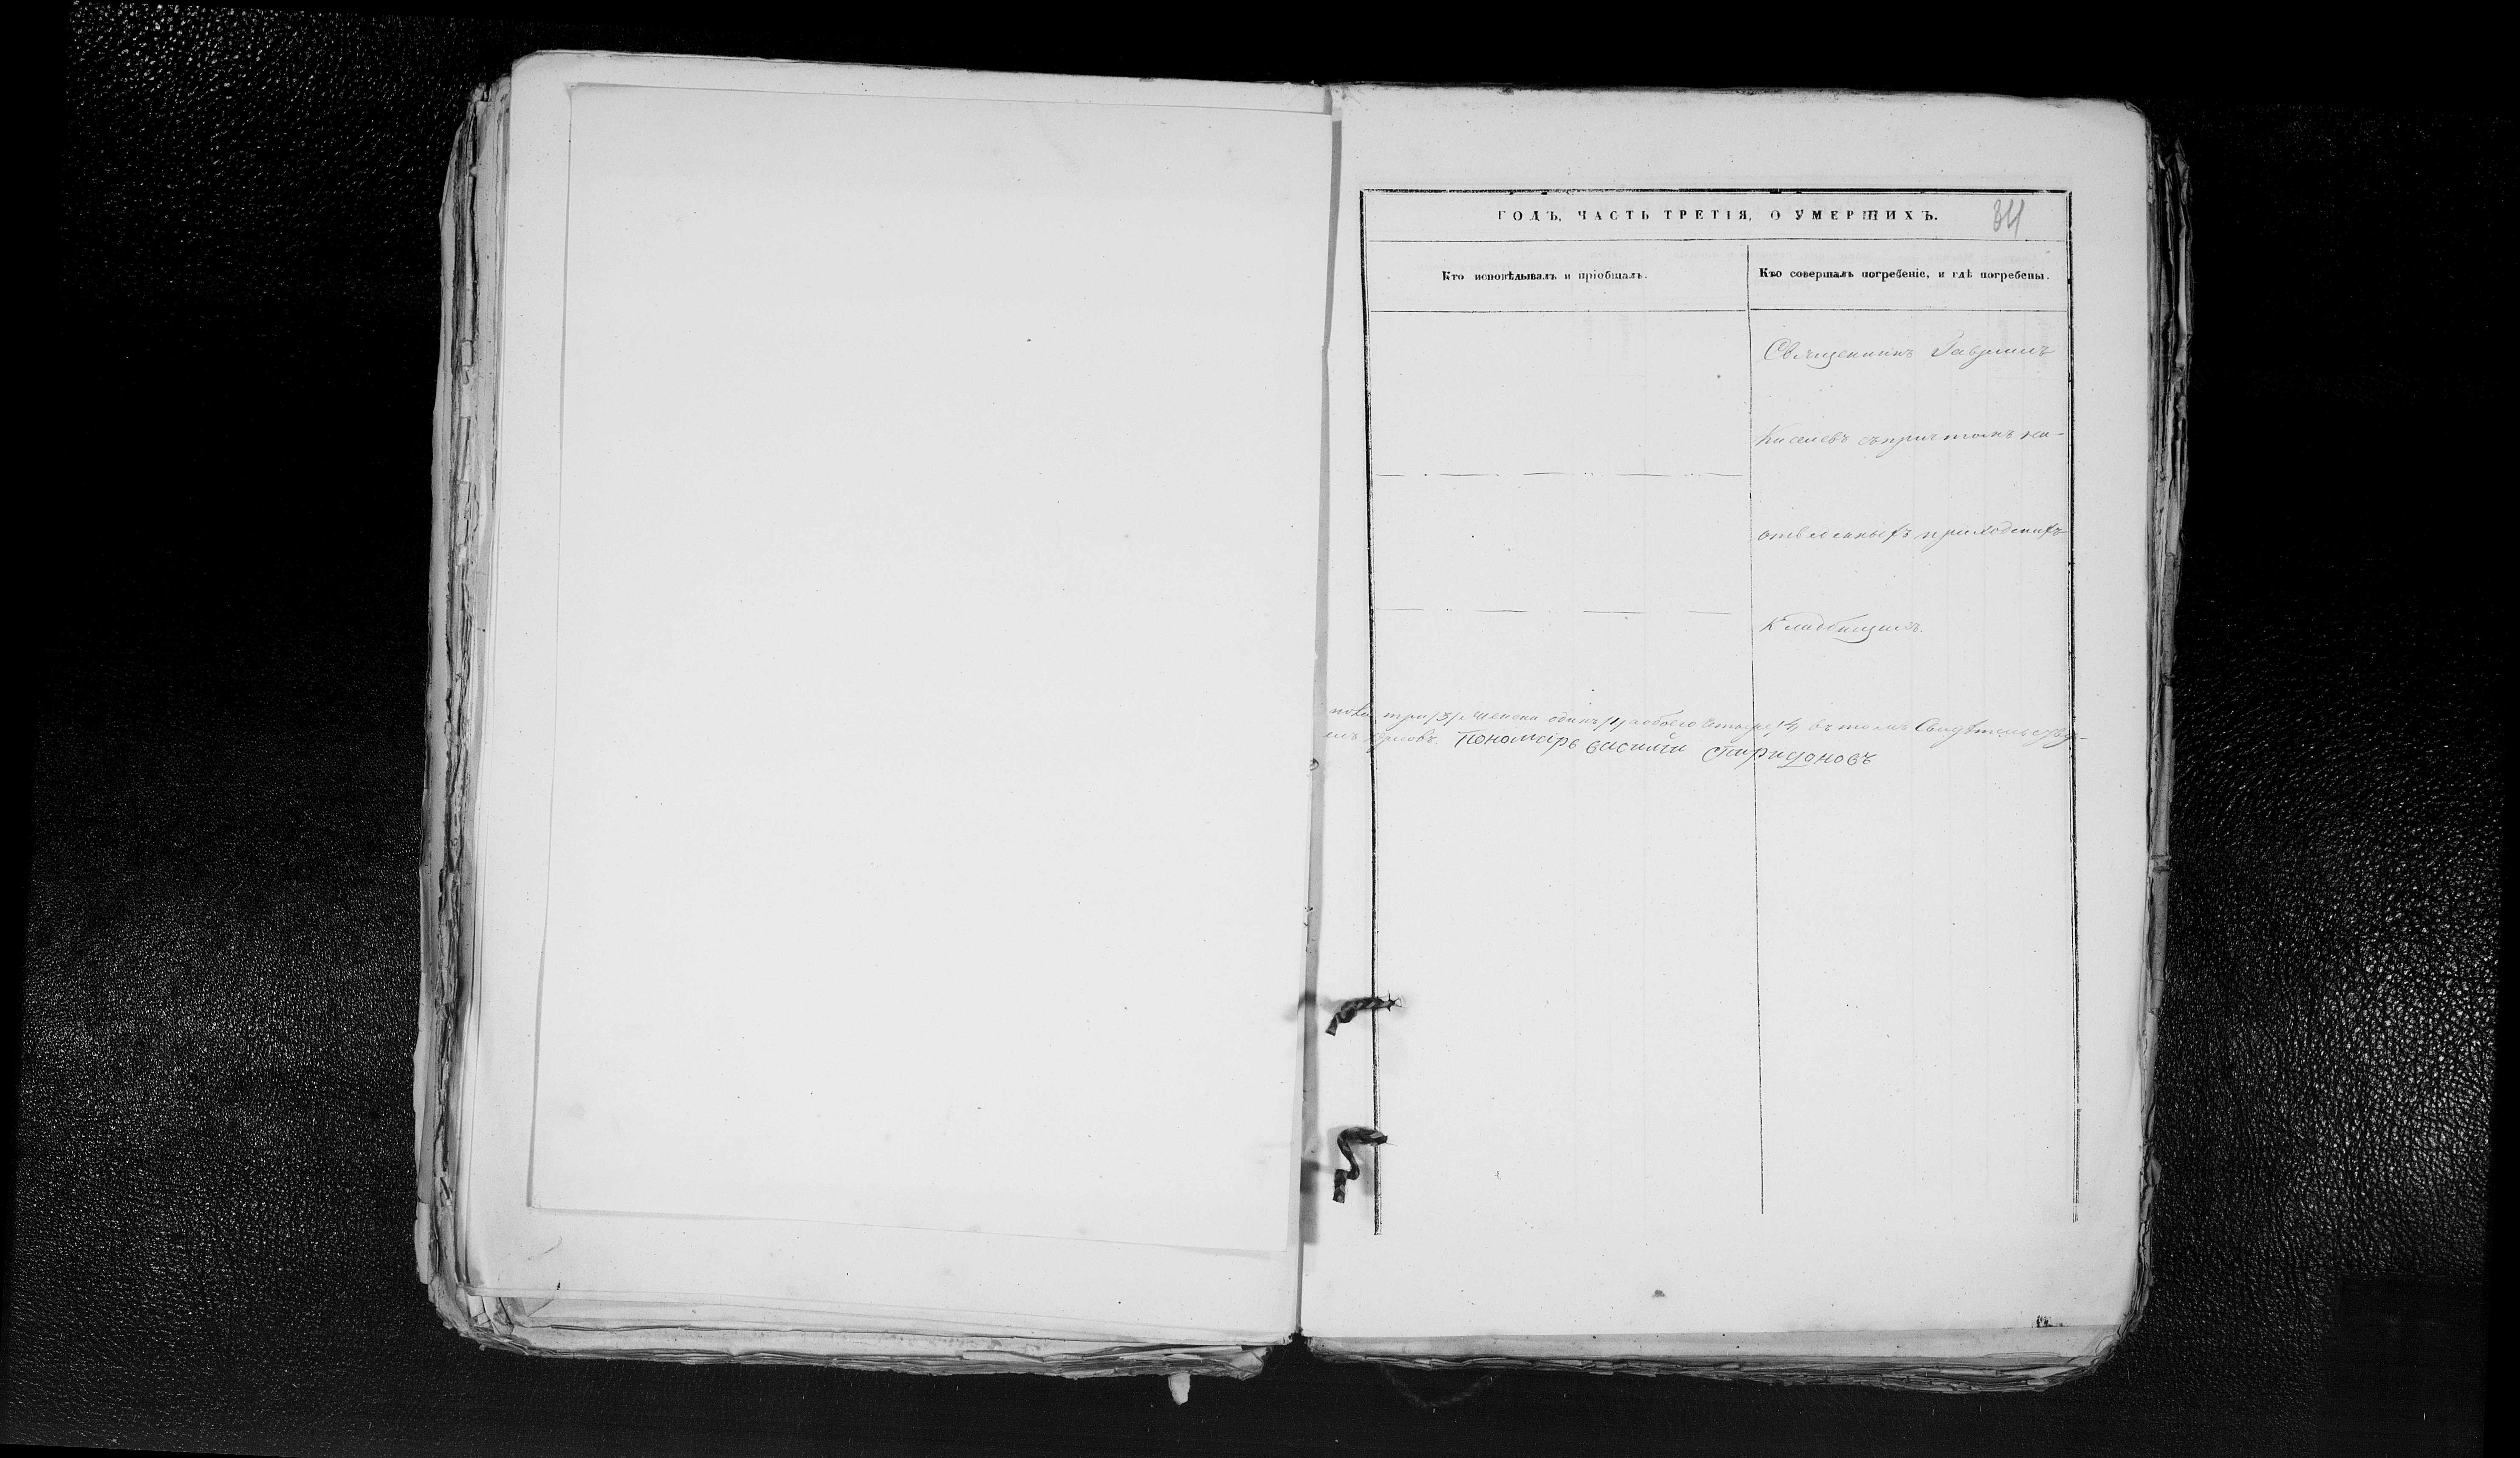 ГОДЪ, ЧАСТЬ ТРЕТІЯ, О УМЕРШИХЪ.
34
Кто исповѣдывалъ и пріобщалъ.
Кто совершалъ погребеніе, и гдѣ погребены.
Священникъ Гавриилъ
Киселевъ съ причтомъ на-
отведенныхъ приходскихъ
Кладбищахъ.
пола три /3/ женска одинъ /1/ а обоего четыре /4/, въ томъ Свидѣтельству-
емъ
Пономарь василий спиридоновъ